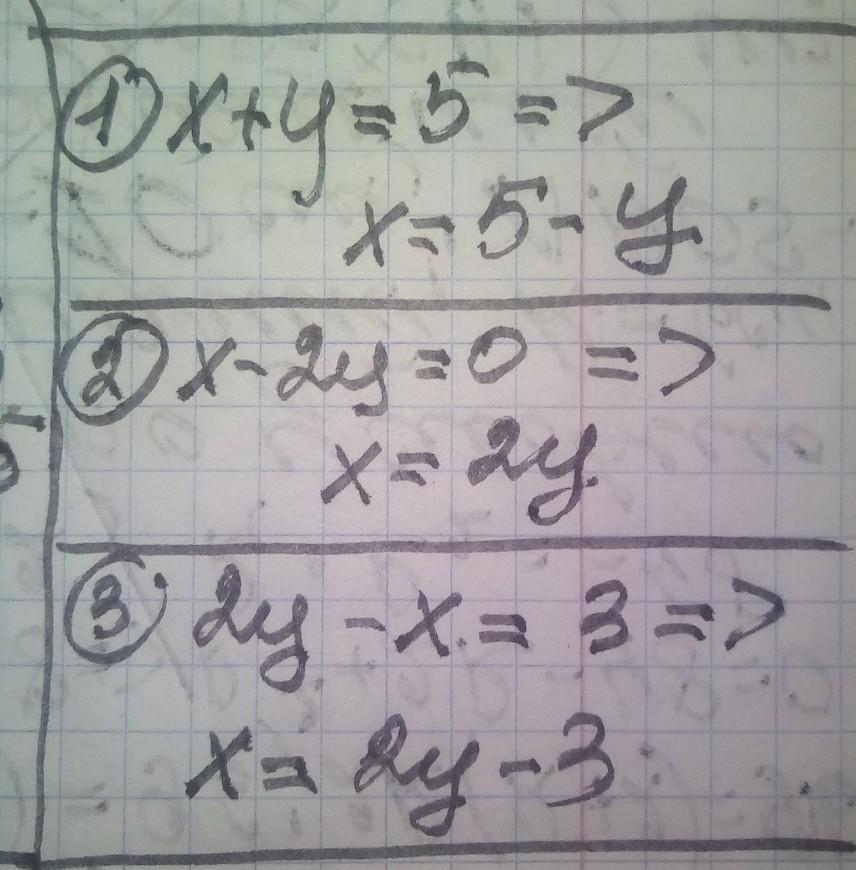 ① x+y=5 =>
x=5-y
② x-2y=0 =>
x=2y
③ 2y-x=3=>
x=2y-3